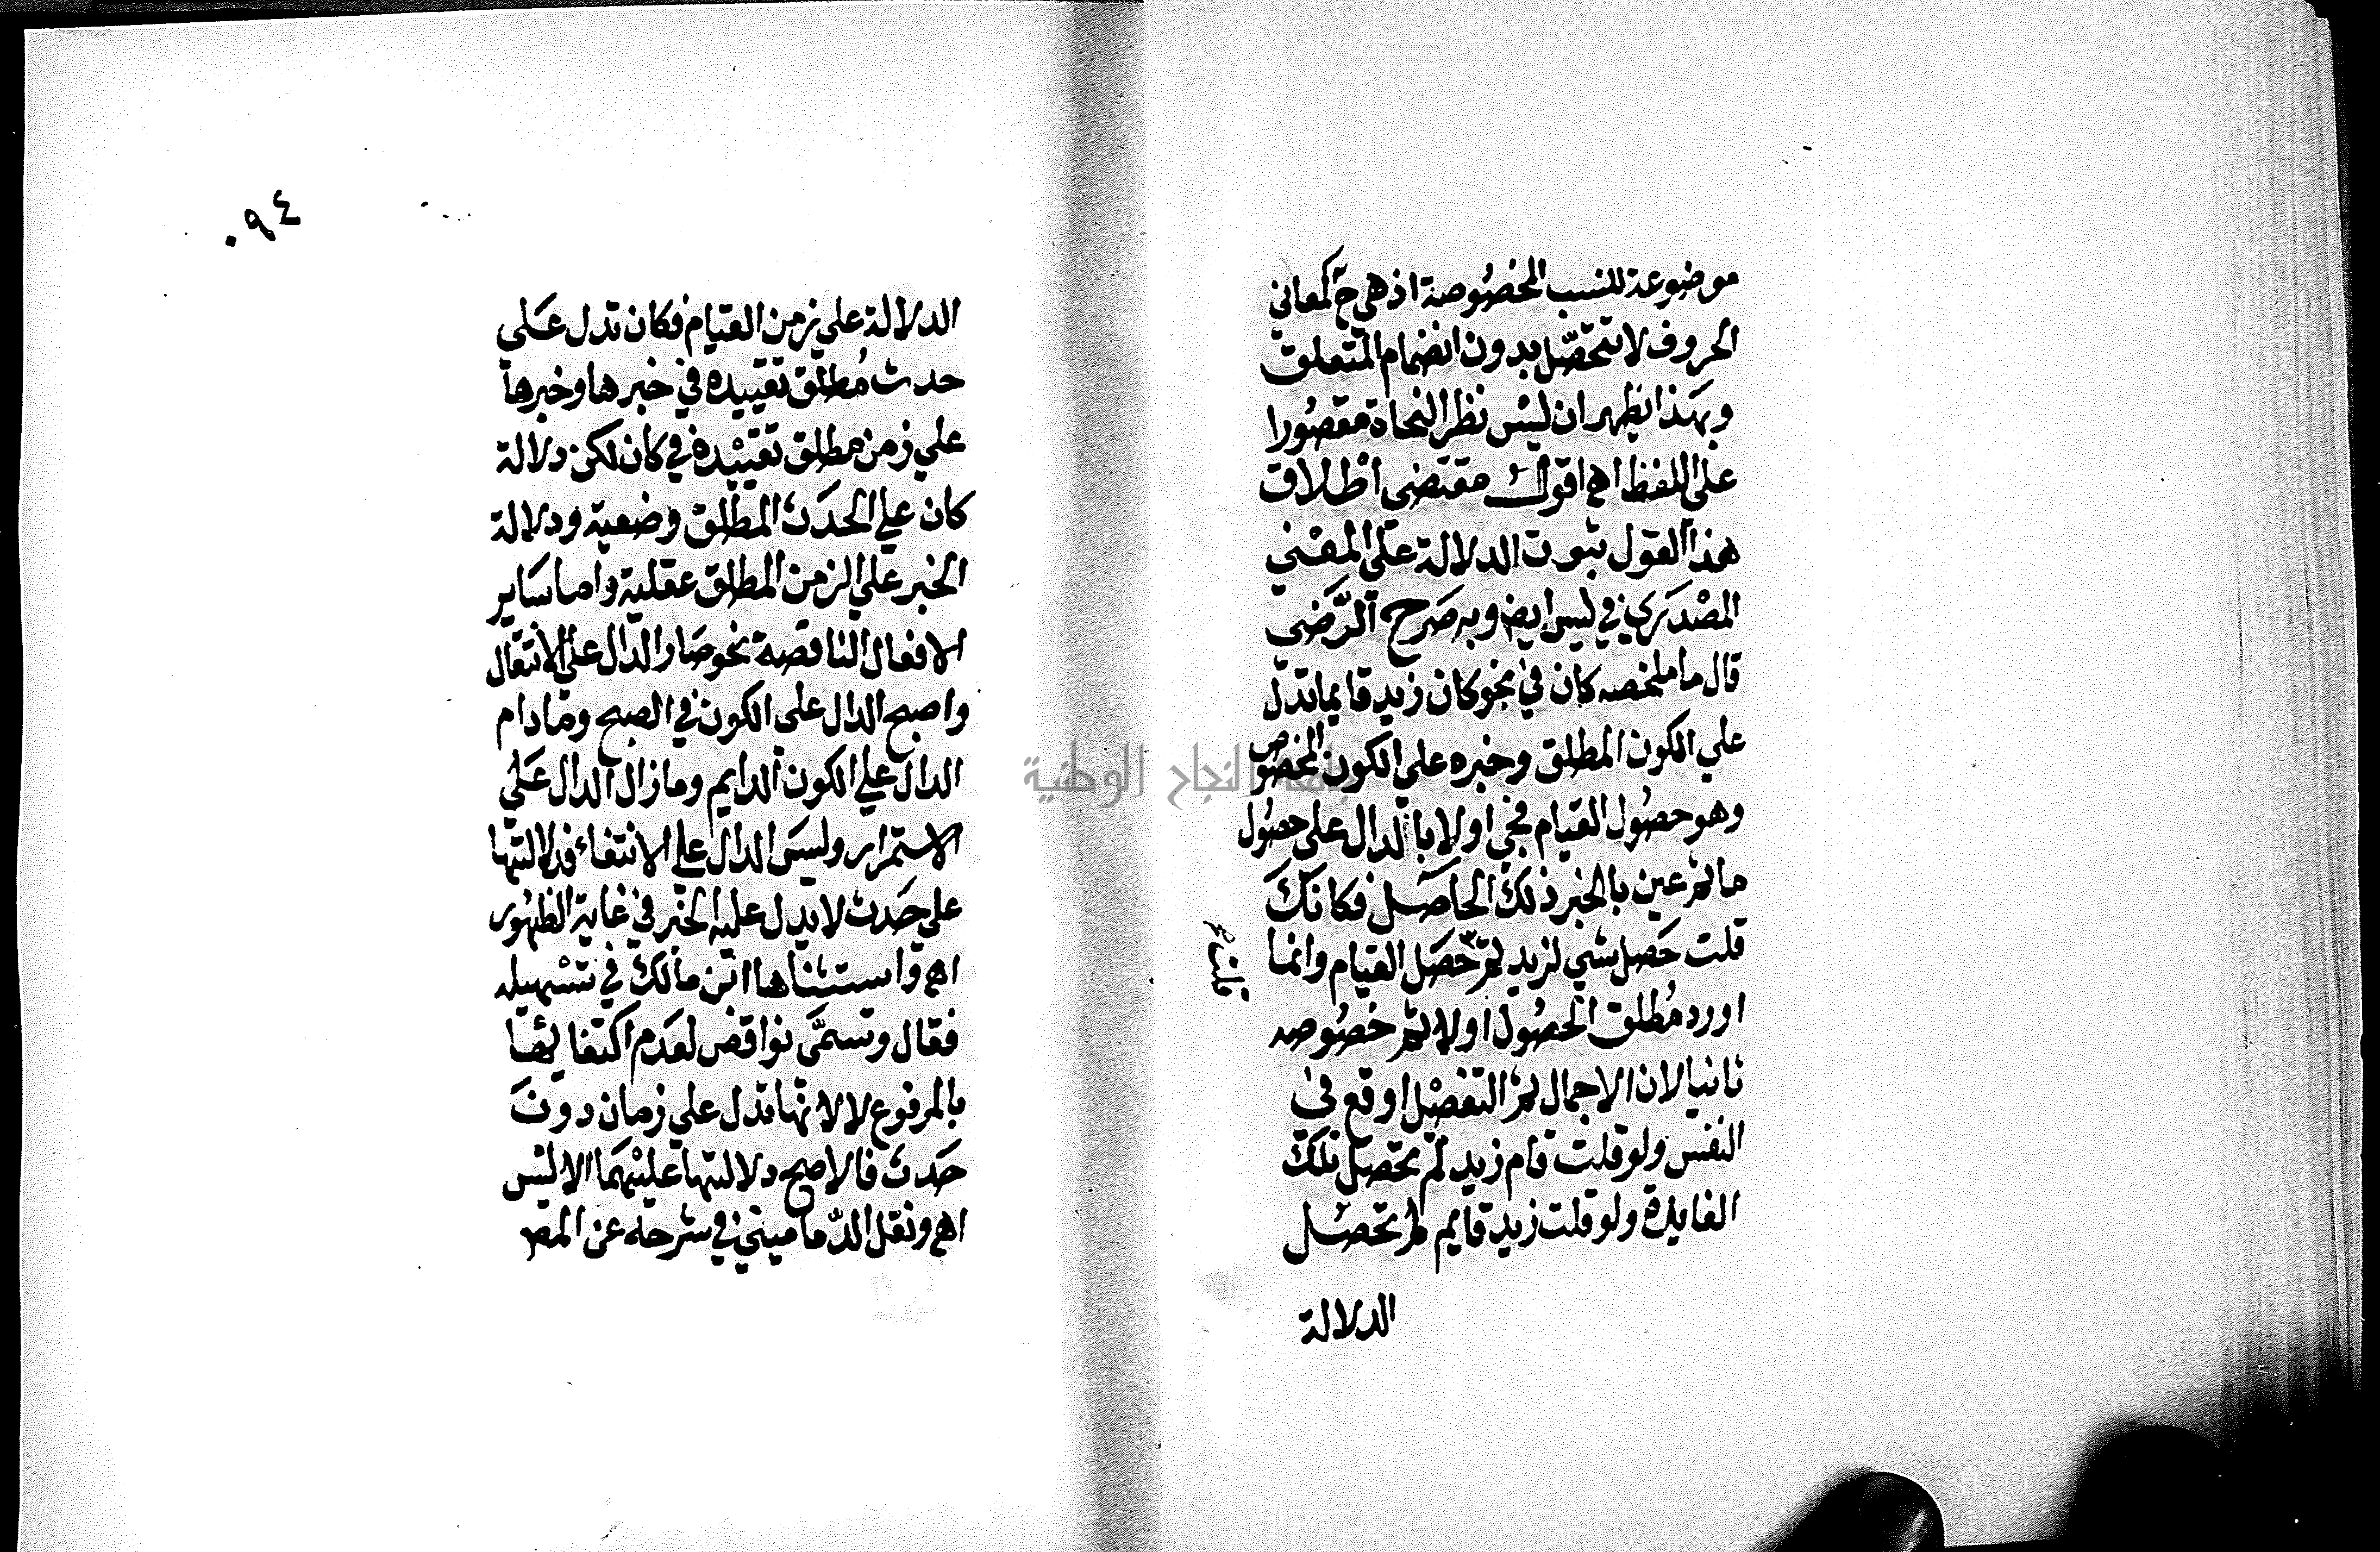 موضوعة للنسب المخصوصة اذ هي ح كمعاني
الحروف لا تتحصل بدون انضمام المتعلق
وبهذا يظهر ان ليس نظر النحاة مقصورا
على اللفظ اهـ اقول مقتضى اطلاق
هذا القول ثبوت الدلالة على المعني
المصدري في ليس ايض وبه صرح الرضى
قال ما ملخصه كان في نحو كان زيد قايما تدل
علي الكون المطلق وخبره علي الكون المخصوص
وهو حصول القيام فجي اولا بالدال على حصول
ما ثم عين بالخبر ذلك الحاصل فكانك
قلت حصل شي لزيد ثم حصل القيام وانما
اورد مطلق الحصول اولا ثم خصوصه
ثانيا لان الاجمال ثم التفصيل اوقع في
النفس ولو قلت قام زيد لم تحصل تلك
الفايدة ولو قلت زيد قايم لم تحصل
الدلالة
جامعة النجاح الوطنية
٠٩٤
الدلالة علي زمن القيام فكان تدل علي
حدث مطلق تقييده في خبرها وخبرها
علي زمن مطلق تقييده في كان لكن دلالة
كان علي الحدث المطلق وضعية ودلالة
الخبر علي الزمن المطلق عقلية واما ساير
الافعال الناقصة نحو صار الدال علي الانتقال
واصبح الدال على الكون في الصبح وما دام
الدال علي الكون الدايم وما زال الدال علي
الاستمرار وليس الدال علي الانتفاء فدلالتها
علي حدث لا يدل عليه الخبر في غاية الظهور
اهـ واستثناها ابن مالك في تسهيله
فقال وتسمى نواقض لعدم اكتفايها
بالمرفوع لا لانها تدل علي زمان دون
حدث فالاصح دلالتها عليهما الا ليس
اهـ ونقل الدماميني في شرحه عن المص